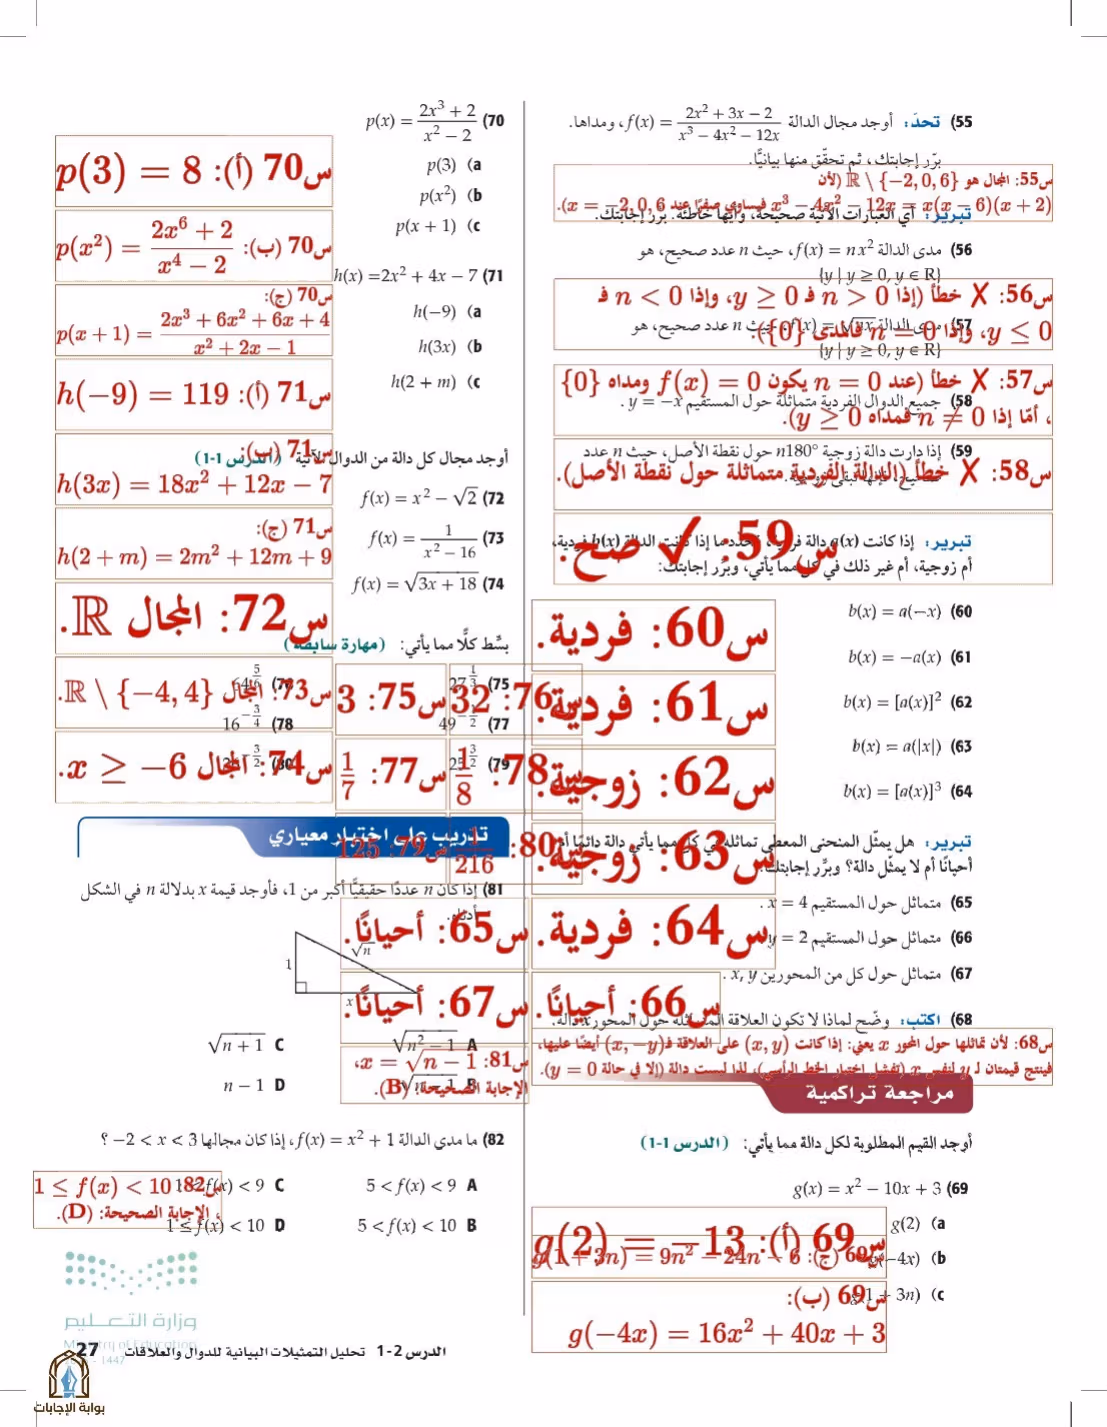 55) تحدّ: أوجد مجال الدالة f(x) = (2x² + 3x − 2)/(x³ − 4x² − 12x)، ومداها.
برّر إجابتك، ثم تحقّق منها بيانيًّا.
س55: المجال هو ℝ \ {−2, 0, 6} (لأن
x³ − 4x² − 12x = x(x − 6)(x + 2) فيساوي صفرًا عند x = −2, 0, 6).
تبرير: أي العبارات الآتية صحيحة، وأيها خاطئة. برّر إجابتك.
56) مدى الدالة f(x) = nx²، حيث n عدد صحيح، هو
{y | y ≥ 0, y ∈ R}
س56: ✗ خطأ (إذا n > 0 فـ y ≥ 0، وإذا n < 0 فـ
y ≤ 0، وإذا n = 0 فالمدى {0}).
57) مدى الدالة f(x) = √nx، حيث n عدد صحيح، هو
{y | y ≥ 0, y ∈ R}
س57: ✗ خطأ (عند n = 0 يكون f(x) = 0 ومداه {0}
، أمّا إذا n ≠ 0 فمداه y ≥ 0).
58) جميع الدوال الفردية متماثلة حول المستقيم y = −x .
59) إذا دارت دالة زوجية n180° حول نقطة الأصل، حيث n عدد
س58: ✗ خطأ (الدالة الفردية متماثلة حول نقطة الأصل).
س59: ✓ صح.
تبرير: إذا كانت a(x) دالة فردية، فحدّد ما إذا كانت الدالة b(x) فردية،
أم زوجية، أم غير ذلك في كل مما يأتي، وبرّر إجابتك:
60) b(x) = a(−x)
س60: فردية.
61) b(x) = −a(x)
س61: فردية.
62) b(x) = [a(x)]²
س62: زوجية.
63) b(x) = a(|x|)
س63: زوجية.
64) b(x) = [a(x)]³
س64: فردية.
تبرير: هل يمثّل المنحنى المعطى تماثله في كل مما يأتي دالة دائمًا أم
أحيانًا أم لا يمثل دالة؟ وبرّر إجابتك:
65) متماثل حول المستقيم x = 4 .
س65: أحيانًا.
66) متماثل حول المستقيم y = 2
س66: أحيانًا.
67) متماثل حول كل من المحورين x, y .
س67: أحيانًا.
68) اكتب: وضّح لماذا لا تكون العلاقة المتماثلة حول المحور x دالة.
س68: لأن تماثلها حول المحور x يعني: إذا كانت (x, y) على العلاقة فـ (x, −y) أيضًا عليها،
فينتج قيمتان لـ y لنفس x (تفشل اختبار الخط الرأسي)، لذا ليست دالة (إلا في حالة y = 0).
مراجعة تراكمية
أوجد القيم المطلوبة لكل دالة مما يأتي: (الدرس 1-1)
69) g(x) = x² − 10x + 3
a) g(2)
س69 (أ): g(2) = −13
b) g(−4x)
س69 (ج): g(1 + 3n) = 9n² − 24n − 6
c) g(1 + 3n)
س69 (ب):
g(−4x) = 16x² + 40x + 3
70) p(x) = (2x³ + 2)/(x² − 2)
a) p(3)
b) p(x²)
c) p(x + 1)
س70 (أ): p(3) = 8
س70 (ب): p(x²) = (2x⁶ + 2)/(x⁴ − 2)
س70 (ج):
p(x + 1) = (2x³ + 6x² + 6x + 4)/(x² + 2x − 1)
71) h(x) = 2x² + 4x − 7
a) h(−9)
b) h(3x)
c) h(2 + m)
س71 (أ): h(−9) = 119
س71 (ب):
h(3x) = 18x² + 12x − 7
س71 (ج):
h(2 + m) = 2m² + 12m + 9
أوجد مجال كل دالة من الدوال الآتية (الدرس 1-1)
72) f(x) = x² − √2
73) f(x) = 1/(x² − 16)
74) f(x) = √(3x + 18)
س72: المجال ℝ.
س73: المجال ℝ \ {−4, 4}.
س74: المجال x ≥ −6.
بسّط كلًّا مما يأتي: (مهارة سابقة)
75) 27^(1/3)
76) 64^(5/6)
77) 49^(−1/2)
78) 16^(−3/4)
79) 25^(3/2)
س75: 3
س76: 32
س77: 1/7
س78: 1/8
س79: 125
س80: 1/216
تدريب على اختبار معياري
81) إذا كان n عددًا حقيقيًّا أكبر من 1، فأوجد قيمة x بدلالة n في الشكل
أدناه.
1
√n
x
A √(n² − 1)
C √(n + 1)
B √(n − 1)
D n − 1
س81: x = √(n − 1)،
الإجابة الصحيحة: (B).
82) ما مدى الدالة f(x) = x² + 1، إذا كان مجالها −2 < x < 3 ؟
A 5 < f(x) < 9
C 1 < f(x) < 9
B 5 < f(x) < 10
D 1 ≤ f(x) < 10
س82: 1 ≤ f(x) < 10
، الإجابة الصحيحة: (D).
وزارة التعليم
Ministry of Education
1447
الدرس 2-1 تحليل التمثيلات البيانية للدوال والعلاقات 27
بوابة الإجابات